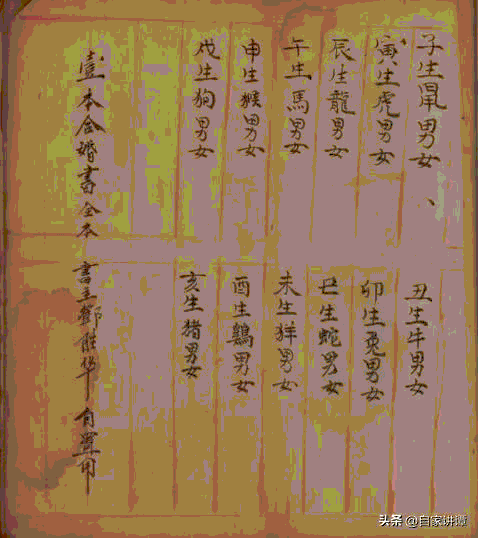 子生鼠男女
丑生牛男女
寅生虎男女
卯生兎男女
辰生龍男女
巳生蛇男女
午生馬男女
未生羊男女
申生猴男女
酉生鷄男女
戌生狗男女
亥生猪男女
壹本合婚書全本
書主鄭華自置用
头条 @自家讲谭